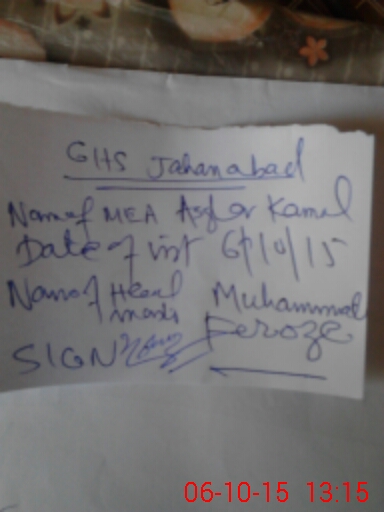 GHS Jahanabad
Name of MEA Asfar Kamal
Date of vist 6/10/15
Name of Head Muhammad
Feroze
SIGN
06-10-15 13:15